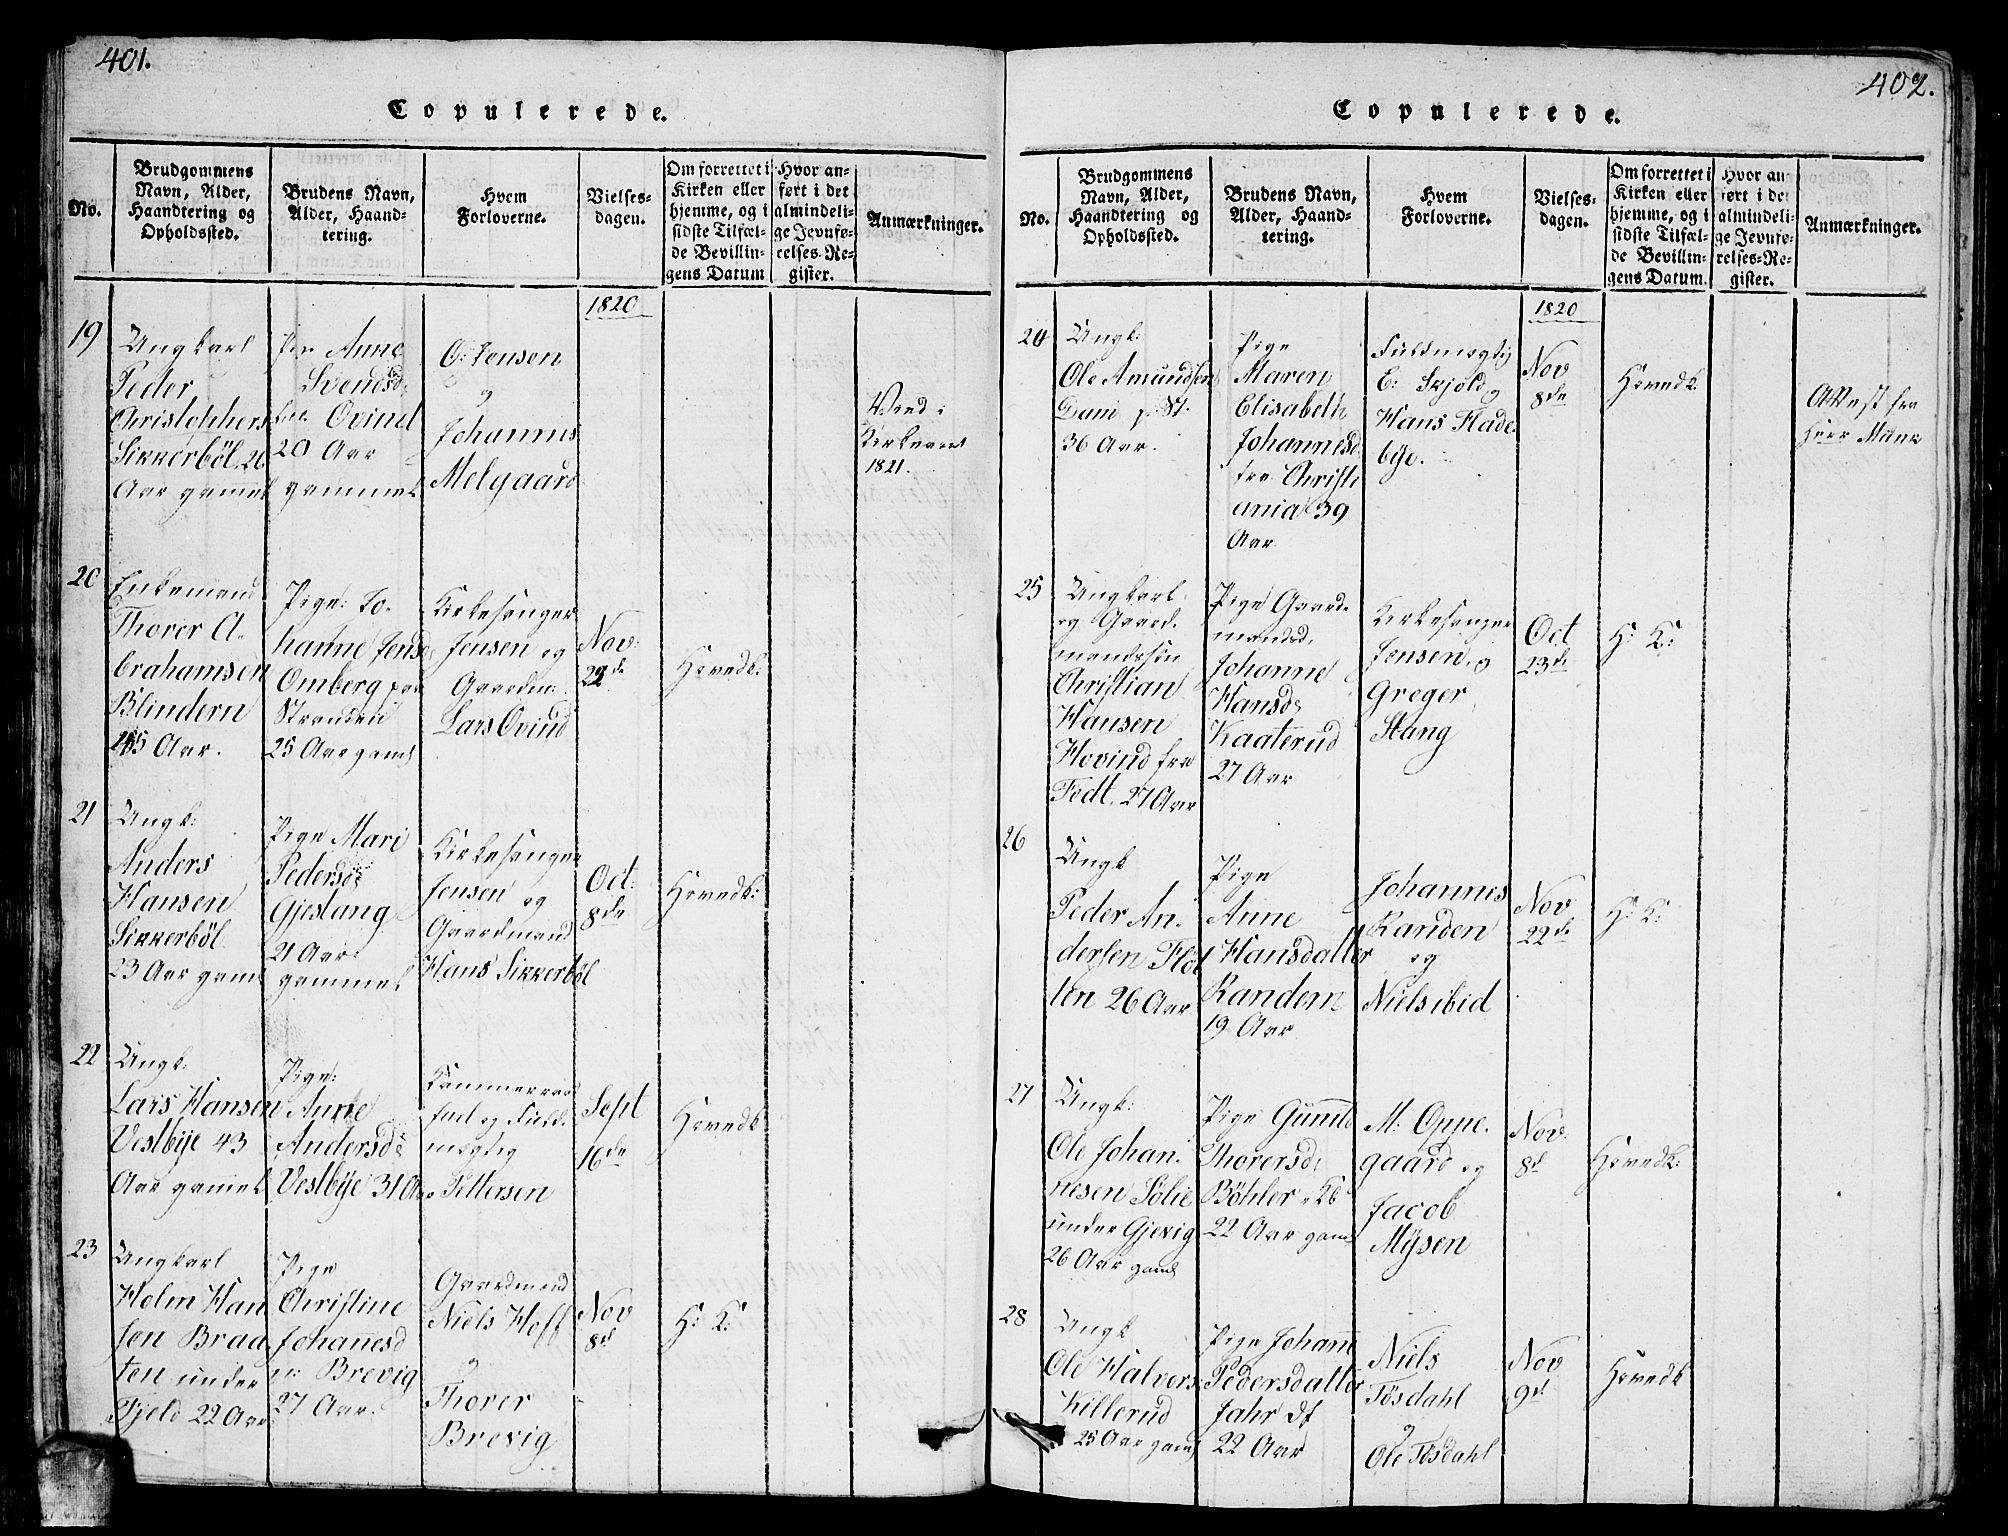 401.
Copulerede.
No.
Brudgommens
Navn, Alder,
Haandtering og
Opholdssted.
Brudens Navn,
Alder, Haand-
tering.
Hvem
Forloverne.
Vielses-
dagen.
Om forrettet i
Kirken eller
hjemme, og i
sidste Tilfæl-
de Bevillin-
gens Datum
Hvor an-
ført i det
almindeli-
ge Jevnfø-
relses-Re-
gister.
Anmærkninger.
1820
19
Ungkarl
Peder
Christophers
Sikkerböl, 26
Aar gammel
Anne
Svendsd
Ovind
20 Aar
gammel
O: Jensen
og
Johannes
Melgaard
Viod i
Kirken
1821.
20
Enkemand
Thorer A-
brahamsen
Blindern
45 Aar.
Pige: Jo-
hanne Jensd
Omberg fra
Stranden
25 Aar gaml
Kirkesanger
Jensen og
Gaardm:
Lars Ovind
Nov:
22de
Hovedk:
21
Ungk:
Anders
Hansen
Sikkerböl
23 Aar gaml
Pige Mari
Pedersd:
Gjeslang
21 Aar
gammel
Kirkesanger
Jensen og
Gaardmand
Hans Sikkerböl
Oct:
8de
Hovedk:
22
Ungk:
Lars Hansen
Vestbye 43
Aar gamel
Pige:
Anne
Andersd:
Vestbye 31 Aar
og Fuld-
mægtig
Pettersen
Sept
16de
Hovedk
23
Ungkarl
Holm Han
sen Braa
ten under
Fjeld 22 Aar
Pige
Christine
Johannesd
Brevig
27 Aar.
Gaardmand
Niels Hoff
og
Thorer
Brevig
Nov
8d
H: K:
402.
Copulerede.
No.
Brudgommens
Navn, Alder,
Haandtering og
Opholdssted.
Brudens Navn,
Alder, Haand-
tering.
Hvem
Forloverne.
Vielses-
dagen.
Om forrettet i
Kirken eller
hjemme, og i
sidste Tilfæl-
de Bevillin-
gens Datum.
Hvor an-
ført i det
almindeli-
ge Jevnfø-
relses-Re-
gister.
Anmærkninger.
1820
24
Ungk:
Ole Amundsen
36 Aar.
Pige
Maren
Elisabeth
Johannesd
fra Christi
ania 39
Aar
Fuldmægtig
E: Skjold og
Hans Flade-
bye.
Nov
8de
Hovedk
Attest fra
Herr Munk
25
Ungkarl
og Gaard-
mandssön
Christian
Hansen
Hovind fra
Fedt, 27 Aar
Pige Gaard-
mandsd.
Johanne
Hansd:
Kaaterud
27 Aar
Kirkesanger
Jensen, og
Greger
Stang
Oct
23de
H: K:
26
Ungk
Peder An-
dersen Flöt
ten 26 Aar
Pige
Anne
Hansdatter
Randem
19 Aar
Johannes
Randen
og
Niels ibid
Nov
22de
H: K:
27
Ungk:
Ole Johan-
nesen Solie
under Gjevig
26 Aar gaml
Pige Gunild
Thorersd:
Böhler
22 Aar gaml
M: Oppe-
gaard og
Jacob
Mÿsen
Nov:
8d
Hovedk:
28
Ungk
Ole Halvors
Killerud
25 Aar gaml
Pige Johane
Pedersdatter
Jahr
22 Aar
Niels
Tösdahl
og
Ole Tösdahl
Nov
9d
Hovedk